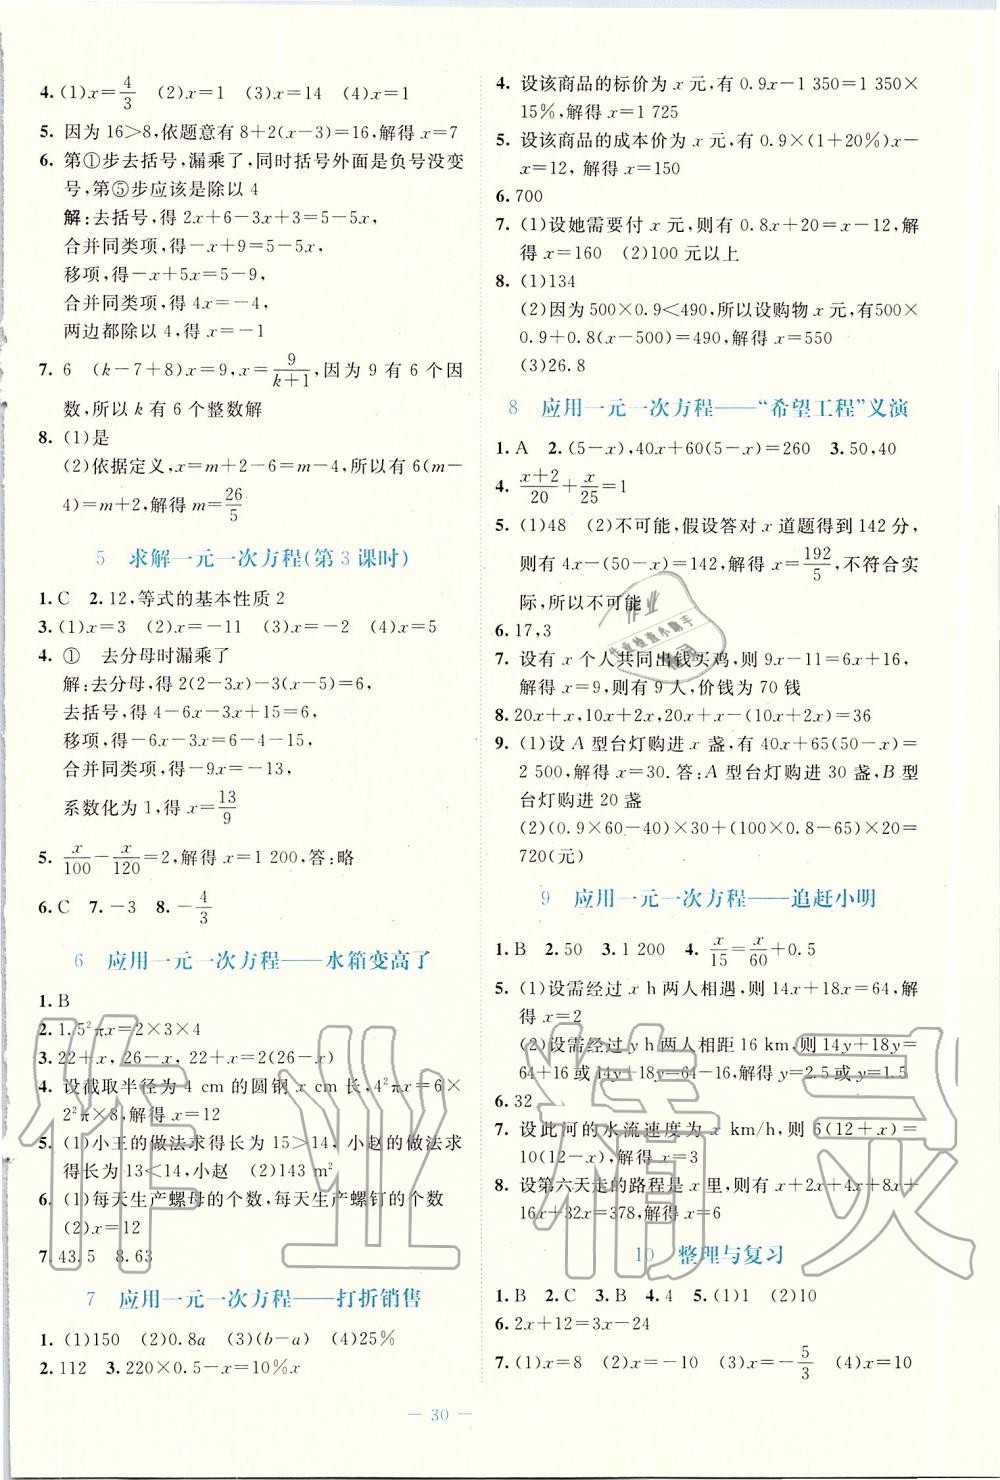 4. (1)x=4/3 (2)x=1 (3)x=14 (4)x=1
5. 因为 16>8,依题意有 8+2(x-3)=16,解得 x=7
6. 第①步去括号,漏乘了,同时括号外面是负号没变
号,第⑤步应该是除以 4
解:去括号,得 2x+6-3x+3=5-5x,
合并同类项,得-x+9=5-5x,
移项,得-x+5x=5-9,
合并同类项,得 4x=-4,
两边都除以 4,得 x=-1
7. 6 (k-7+8)x=9,x=9/(k+1),因为 9 有 6 个因
数,所以 k 有 6 个整数解
8. (1)是
(2)依据定义,x=m+2-6=m-4,所以有 6(m-
4)=m+2,解得 m=26/5
5 求解一元一次方程(第 3 课时)
1. C 2. 12,等式的基本性质 2
3. (1)x=3 (2)x=-11 (3)x=-2 (4)x=5
4. ① 去分母时漏乘了
解:去分母,得 2(2-3x)-3(x-5)=6,
去括号,得 4-6x-3x+15=6,
移项,得-6x-3x=6-4-15,
合并同类项,得-9x=-13,
系数化为 1,得 x=13/9
5. x/100-x/120=2,解得 x=1 200,答:略
6. C 7. -3 8. -4/3
6 应用一元一次方程——水箱变高了
1. B
2. 1.5²πx=2×3×4
3. 22+x,26-x,22+x=2(26-x)
4. 设截取半径为 4 cm 的圆钢 x cm 长,4²πx=6×
2²π×8,解得 x=12
5. (1)小王的做法求得长为 15>14,小赵的做法求
得长为 13<14,小赵 (2)143 m²
6. (1)每天生产螺母的个数,每天生产螺钉的个数
(2)x=12
7. 43.5 8. 63
7 应用一元一次方程——打折销售
1. (1)150 (2)0.8a (3)(b-a) (4)25%
2. 112 3. 220×0.5-x=10%x
4. 设该商品的标价为 x 元,有 0.9x-1 350=1 350×
15%,解得 x=1 725
5. 设该商品的成本价为 x 元,有 0.9×(1+20%)x-
x=12,解得 x=150
6. 700
7. (1)设她需要付 x 元,则有 0.8x+20=x-12,解
得 x=160 (2)100 元以上
8. (1)134
(2)因为 500×0.9<490,所以设购物 x 元,有500
×0.9+0.8(x-500)=490,解得 x=550
(3)26.8
8 应用一元一次方程——“希望工程”义演
1. A 2. (5-x),40x+60(5-x)=260 3. 50,40
4. (x+2)/20+x/25=1
5. (1)48 (2)不可能,假设答对 x 道题得到 142 分,
则有 4x-(50-x)=142,解得 x=192/5,不符合实
际,所以不可能
6. 17,3
7. 设有 x 个人共同出钱买鸡,则 9x-11=6x+16,
解得 x=9,则有 9 人,价钱为 70 钱
8. 20x+x,10x+2x,20x+x-(10x+2x)=36
9. (1)设 A 型台灯购进 x 盏,有 40x+65(50-x)=
2 500,解得 x=30.答:A 型台灯购进 30 盏,B 型
台灯购进 20 盏
(2)(0.9×60-40)×30+(100×0.8-65)×20=
720(元)
9 应用一元一次方程——追赶小明
1. B 2. 50 3. 1 200 4. x/15=x/60+0.5
5. (1)设需经过 x h 两人相遇,则 14x+18x=64,解
得 x=2
(2)设需经过 y h 两人相距 16 km,则 14y+18y=
64+16 或 14y+18y=64-16,解得 y=2.5 或 y=1.5
6. 32
7. 设此河的水流速度为 x km/h,则 6(12+x)=
10(12-x),解得 x=3
8. 设第六天走的路程是 x 里,则有 x+2x+4x+8x+
16x+32x=378,解得 x=6
10 整理与复习
1. B 2. C 3. B 4. 4 5. (1)1 (2)10
6. 2x+12=3x-24
7. (1)x=8 (2)x=-10 (3)x=-5/3 (4)x=10
— 30 —
作业精灵
作业
作业检查小助手
精灵